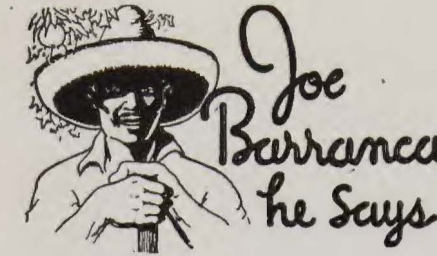 Joe
Barranca
he Says